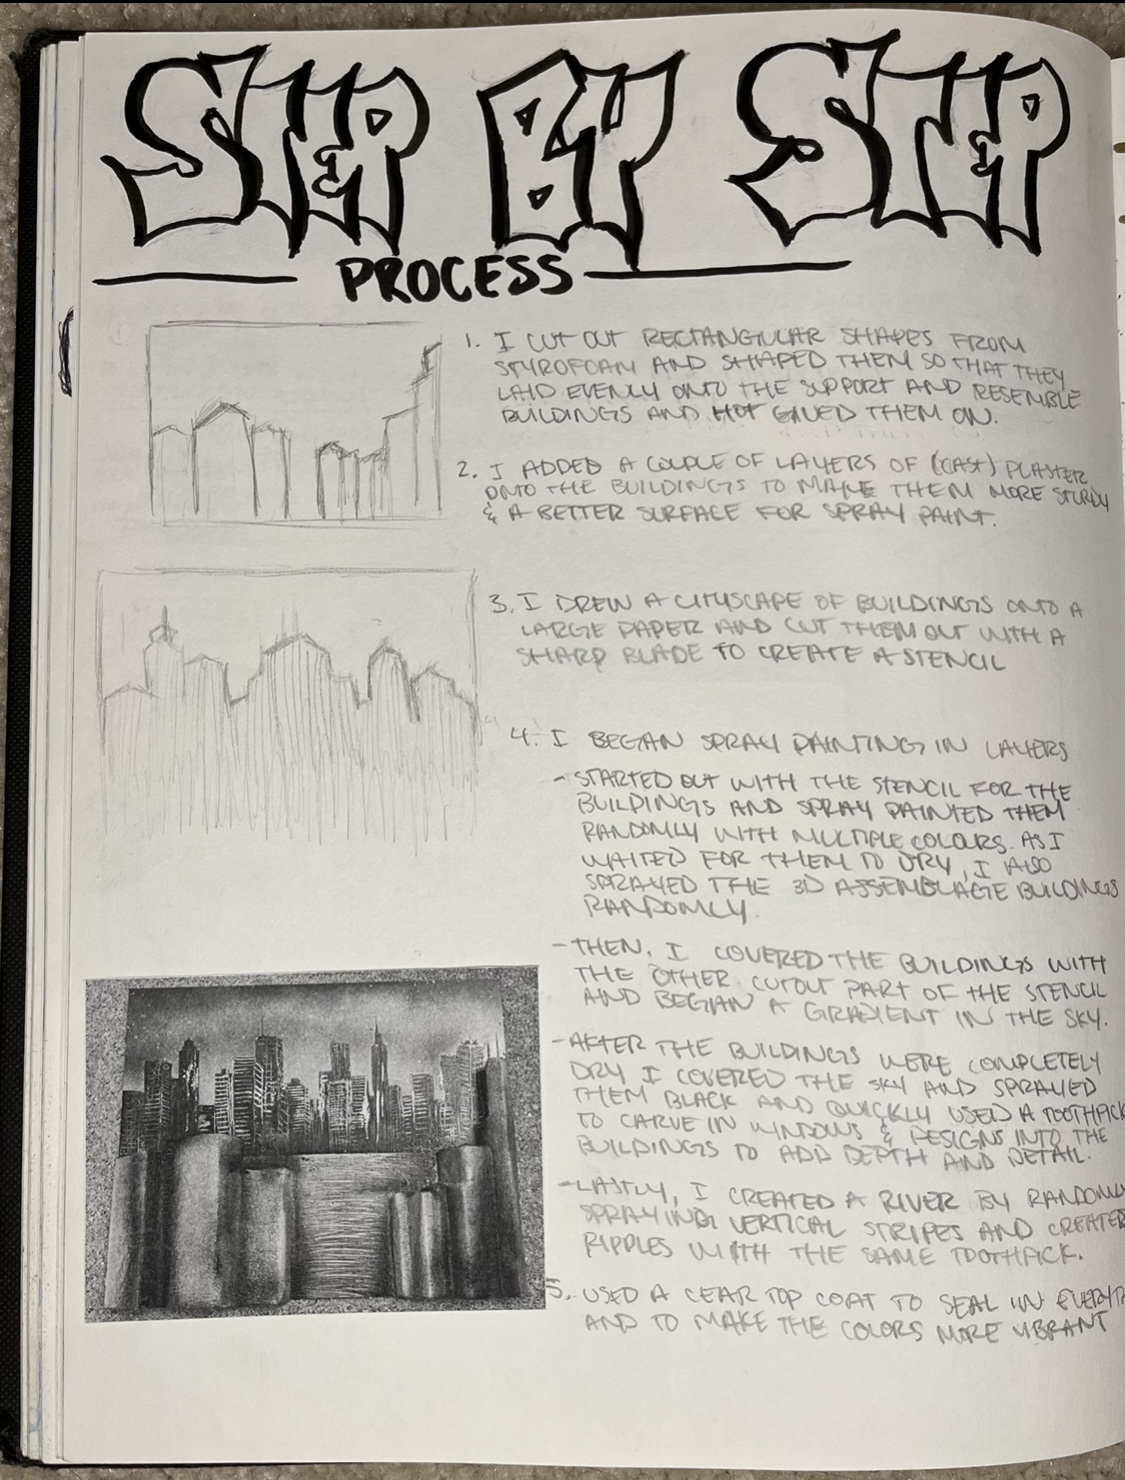 STEP BY STEP
PROCESS
1. I CUT OUT RECTANGULAR SHAPES FROM
STYROFOAM AND SHAPED THEM SO THAT THEY
LAID EVENLY ONTO THE SUPPORT AND RESEMBLE
BUILDINGS AND HOT GLUED THEM ON.
2. I ADDED A COUPLE OF LAYERS OF (CAST) PLASTER
ONTO THE BUILDINGS TO MAKE THEM MORE STURDY
& A BETTER SURFACE FOR SPRAY PAINT.
3. I DREW A CITYSCAPE OF BUILDINGS ONTO A
LARGE PAPER AND CUT THEM OUT WITH A
SHARP BLADE TO CREATE A STENCIL
4. I BEGAN SPRAY PAINTING IN LAYERS
- STARTED OUT WITH THE STENCIL FOR THE
BUILDINGS AND SPRAY PAINTED THEM
RANDOMLY WITH MULTIPLE COLOURS. AS I
WAITED FOR THEM TO DRY, I ALSO
SPRAYED THE 3D ASSEMBLAGE BUILDINGS
RANDOMLY.
- THEN, I COVERED THE BUILDINGS WITH
THE OTHER CUTOUT PART OF THE STENCIL
AND BEGAN A GRADIENT IN THE SKY.
- AFTER THE BUILDINGS WERE COMPLETELY
DRY I COVERED THE SKY AND SPRAYED
THEM BLACK AND QUICKLY USED A TOOTHPICK
TO CARVE IN WINDOWS & DESIGNS INTO THE
BUILDINGS TO ADD DEPTH AND DETAIL.
- LASTLY, I CREATED A RIVER BY RANDOMLY
SPRAYING VERTICAL STRIPES AND CREATED
RIPPLES WITH THE SAME TOOTHPICK.
5. USED A CEAR TOP COAT TO SEAL IN
AND TO MAKE THE COLORS MORE VIBRANT